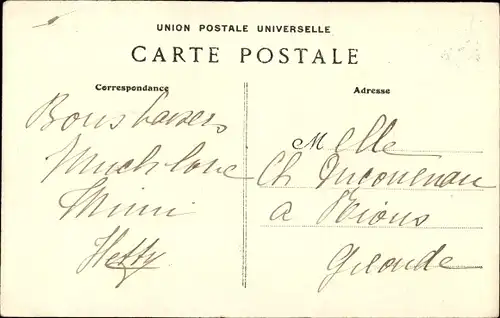 UNION POSTALE UNIVERSELLE
CARTE POSTALE
Correspondance
Adresse
Bons baisers
Much love
Mimi
Hetty
Melle
Ch
a Rions
Gironde